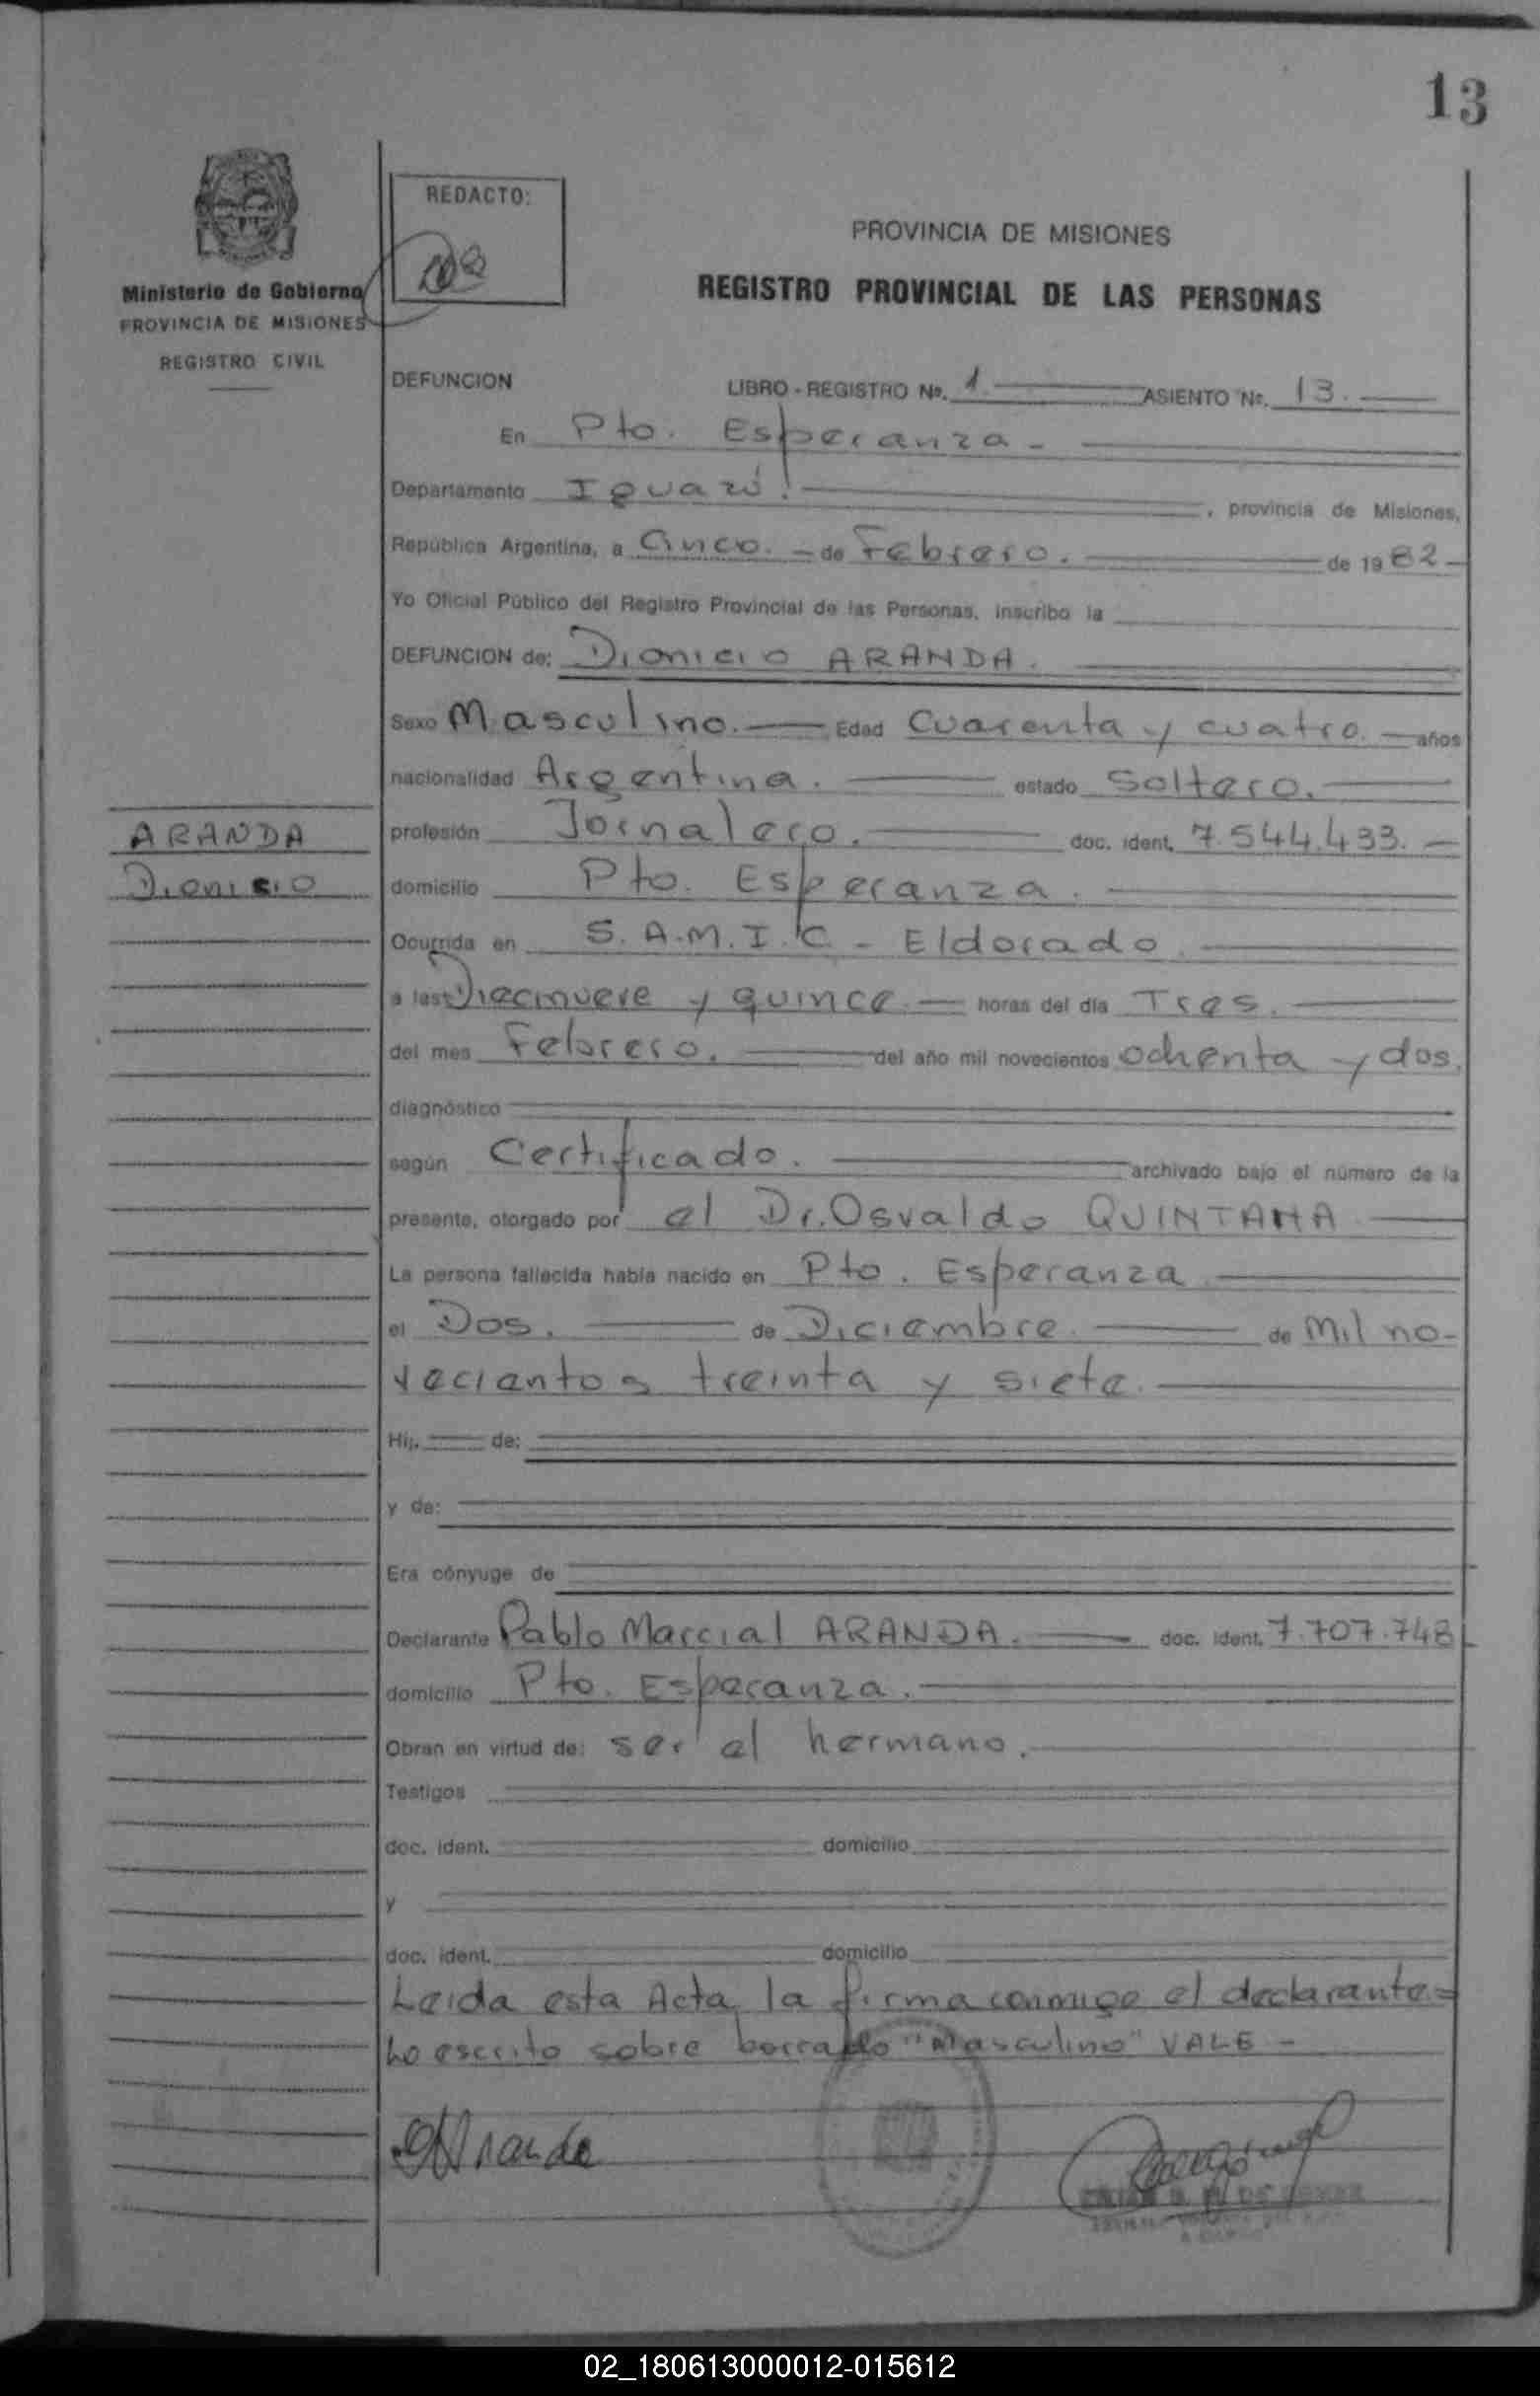 13
REDACTO:
Ministerio de Gobierno
PROVINCIA DE MISIONES
REGISTRO CIVIL
PROVINCIA DE MISIONES
REGISTRO PROVINCIAL DE LAS PERSONAS
DEFUNCION LIBRO - REGISTRO Nº. 1. ASIENTO Nº. 13.
En Pto. Esperanza -
Departamento Iguazú. , provincia de Misiones,
República Argentina, a Cinco. - de Febrero. de 1982-
Yo Oficial Público del Registro Provincial de las Personas, inscribo la
DEFUNCION de: Dionicio ARANDA.
Sexo Masculino. Edad Cuarenta y cuatro. años
nacionalidad Argentina. estado Soltero.
ARANDA
Dionisio
profesión Jornalero. doc. ident. 7.544.433. -
domicilio Pto. Esperanza.
Ocurrida en S.A.M.I.C. - Eldorado.
a las Diecinueve y quince. horas del día Tres.
del mes Febrero. del año mil novecientos ochenta y dos.
diagnóstico
según Certificado. archivado bajo el número de la
presente, otorgado por el Dr. Osvaldo QUINTANA
La persona fallecida había nacido en Pto. Esperanza
el Dos. de Diciembre. de Mil no-
vecientos treinta y siete.
Hij. de:
y de:
Era cónyuge de
Declarante Pablo Marcial ARANDA. doc. ident. 7.707.748
domicilio Pto. Esperanza.
Obran en virtud de: ser el hermano.
Testigos
doc. ident. domicilio
y
doc. ident. domicilio
Leida esta Acta, la firma conmigo el declarante=
Lo escrito sobre borrado "Masculino" VALE -
02_180613000012-015612